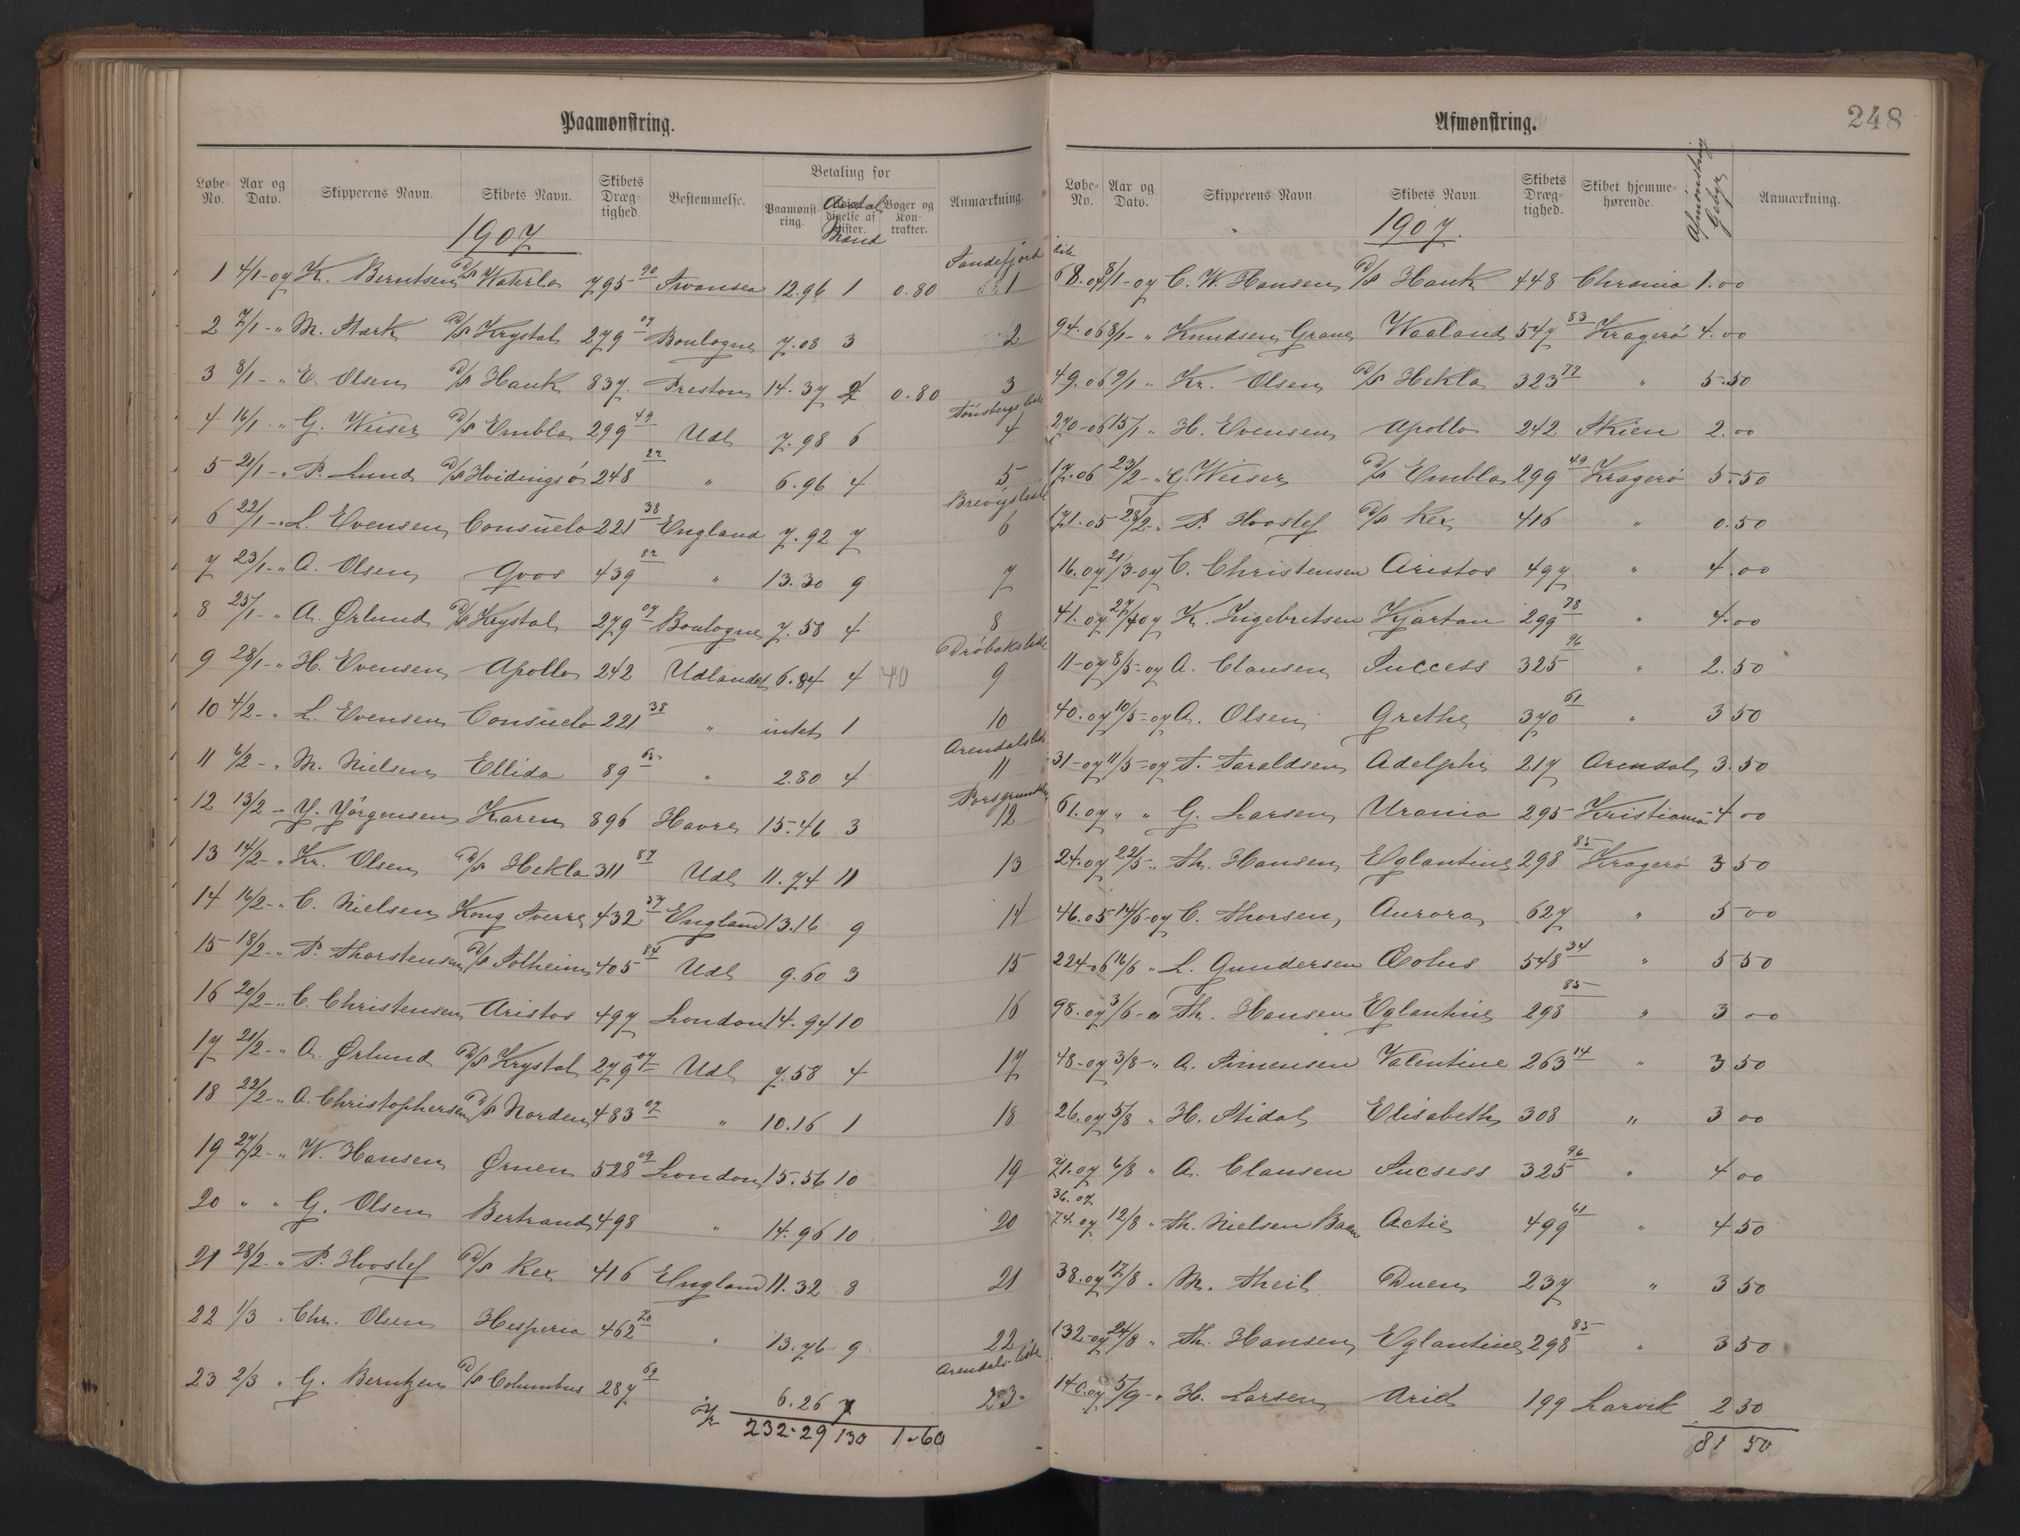 Paamønstring.
Løbe-No. Aar og Dato. Skipperens Navn. Skibets Navn. Skibets Dræg-tighed. Bestemmelse. Betaling for Paamønst-ring. Antal Mand Bøger og Kon-trakter. Anmærkning.
1907
Sandefjord
1 4/1-07 K. Berntsen D/S Waterloo 795 90 Swansea 12.96 1 0.80 1
2 7/1 - " M. Stærk D/S Krystal 279 07 Boulogne 7.08 3 2
3 8/1 - " E. Olsen D/S Hauk 837 Preston 14.37 2 0.80 3
Tønsbergs liste
4 16/1 " G. Weiser D/S Embla 299 49 Udl 7.98 6 4
5 21/1 - " P. Lund D/S Hvidingsø 248 27 " 6.96 4 5
Brevigs liste
6 22/1 - " L. Evensen Consuelo 221 38 England 7.92 7 6
7 23/1 - " A. Olsen Qvos 439 82 " 13.30 9 7
8 25/1 - " A. Ørlund D/S Krystal 279 07 Boulogne 7.58 4 8
Drøbaks liste
9 28/1 - " H. Evensen Apollo 242 Udlandet 6.84 4 40 9
10 4/2 - " L. Evensen Consuelo 221 38 " intet 1 10
Arendals liste
11 6/2 - " M. Nielsen Ellida 89 " 2.80 4 11
Porsgrund
12 13/2 - Y. Jørgensen Karen 896 Havre 15.46 3 12
13 14/2 - " Kr. Olsen D/S Hekla 311 87 Udl 11.74 11 13
14 16/2 - " C. Nielsen Kong Sverre 432 37 England 13.16 9 14
15 18/2 - " P. Thorstensen D/S Solheim 405 84 Udl 9.60 3 15
16 20/2 - " C. Christensen Aristos 497 London 14.94 10 16
17 21/2 - " A. Ørlund D/S Krystal 279 07 Udl 7.58 4 17
18 22/2 - " A. Christophersen D/S Norden 483 07 " 10.16 1 18
19 27/2 - " W. Hansen Ørnen 528 09 London 15.56 10 19
20 " " G. Olsen Bertrand 498 " 14.96 10 20
21 28/2 - " P. Hvoslef D/S Rex 416 England 11.32 8 21
22 1/3 " Chr. Olsen Hesperia 462 20 " 13.76 9 22
Arendals liste
23 2/3 " G. Berntzen D/S Columbus 287 69 6.26 7 23
232.29 130 1.60
Afmønstring. 248
Løbe-No. Aar og Dato. Skipperens Navn. Skibets Navn. Skibets Dræg-tighed. Skibet hjemme-hørende. Afmønstring Gebyr Anmærkning.
1907.
68.07 8/1-07 C. W. Hansen D/S Hauk 448 Chrania 1.00
94.06 8/1 - " Knudsen Grave Waaland 547 83 Kragerø 4.00
49.06 9/1 " Kr. Olsen D/S Hekla 323 77 " 5.50
270-06 15/1 " H. Evensen Apollo 242 Skien 2.00
17.06 23/2 - " G. Weiser D/S Embla 299 49 Kragerø 5.50
171.05 28/2 - " P. Hvoslef D/S Rex 416 " 0.50
16.07 21/3-07 C. Christensen Aristos 497 " 4.00
41.07 27/4 07 K. Ingebretsen Kjartan 299 78 " 4.00
11-07 8/5-07 A. Clausen Success 325 96 " 2.50
40.07 10/5-07 A. Olsen Grethe 370 61 " 3 50
31-07 11/5-07 T. Taraldsen Adelphi 217 Arendal 3.50
61.07 " " G. Larsen Urania 295 Kristiania 4 00
24.07 22/5 - " Th. Hansen Eglantine 298 85 Kragerø 3 50
46.05 14/6-07 C. Thorsen Aurora 627 " 5 00
224-06 16/6 " L. Gundersen Æolus 548 34 " 5 50
98.07 3/6 - " Th. Hansen Eglantine 298 85 " 3 00
48-07 3/8 - " A. Simensen Valentine 263 14 " 3 50
26.07 5/8 " H. Stidal Elisabeth 308 " 3 00
71.07 6/8 " A. Clausen Sucsess 325 96 " 4 00
36.07
74.07 12/8 " Th. Nielsen Baa Activ 499 61 " 4 50
38.07 17/8 " M. Theil Duen 237 " 3 50
132-07 24/8 " Th. Hansen Eglantine 298 85 " 3 50
140.07 5/9 - " H. Larsen Arid 199 Larvik 2 50
81 50